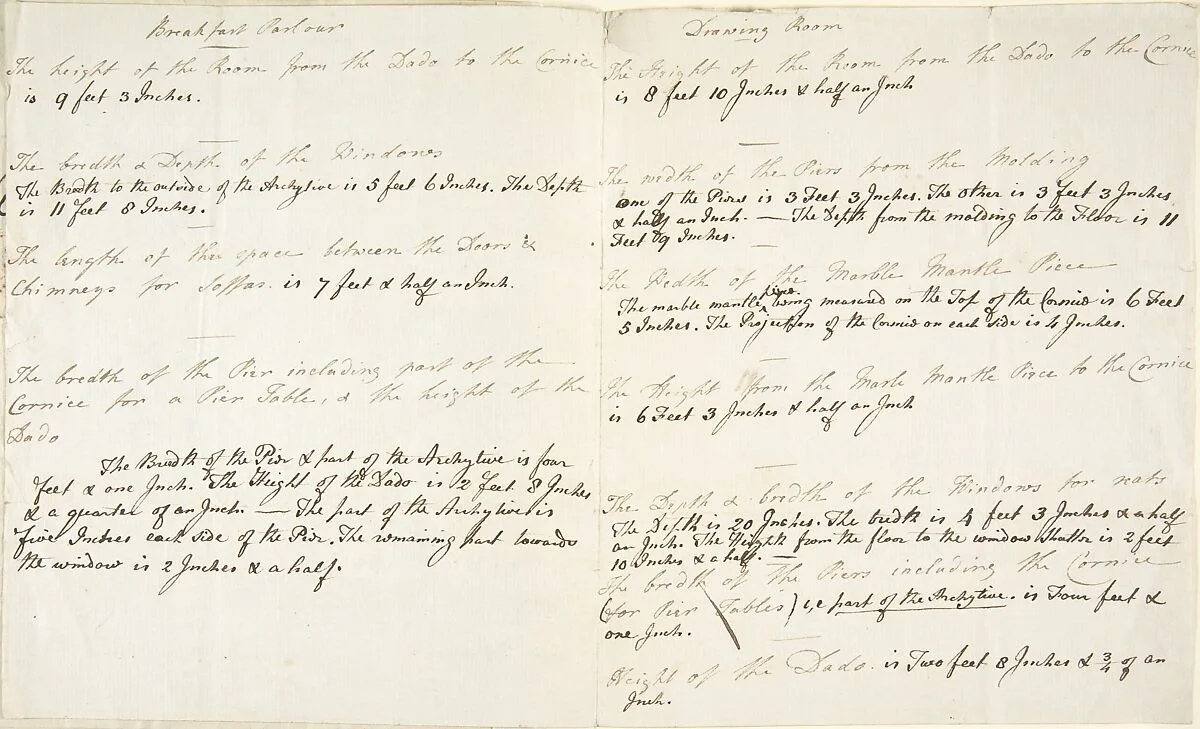 Breakfast Parlour
The height of the Room from the Dado to the Cornice
is 9 feet 3 Inches.
The bredth & Depth of the Windows
The Bredth to the outside of the Archytive is 5 feet 6 Inches. The Depth
is 11 feet 8 Inches.
The length of the space between the Doors &
Chimneys for Soffas. is 7 feet & half an Inch.
The breadth of the Pier including part of the
Cornice for a Pier Table, & the height of the
Dado
The Bredth of the Pier & part of the Archytive is four
feet & one Inch. The Height of the Dado is 2 feet 8 Inches
& a quarter of an Inch. — The part of the Archytive is
five Inches each side of the Pier. The remaining part towards
the window is 2 Inches & a half.
Drawing Room
The Height of the Room from the Dado to the Cornice
is 8 feet 10 Inches & half an Inch
The width of the Piers from the Molding
one of the Piers is 3 Feet 3 Inches. The other is 3 feet 3 Inches
& half an Inch. — The Depth from the molding to the Floor is 11
Feet 9 Inches.
The Wedth of the Marble Mantle Piece
The marble mantle piece being measured on the Top of the Cornice is 6 Feet
5 Inches. The Projection of the Cornice on each side is 4 Inches.
The Height from the Marle Mantle Piece to the Cornice
is 6 Feet 3 Inches & half an Inch
The Depth & bredth of the Windows for seats
The Depth is 20 Inches. The bredth is 4 feet 3 Inches & a half
an Inch. The Height from the floor to the window Shutter is 2 feet
10 Inches & a half.
The breadth of the Piers including the Cornice
(for Pier Tables) i,e part of the Archytive. is Four feet &
one Inch.
Height of the Dado. is Two feet 8 Inches & 3/4 of an
Inch.